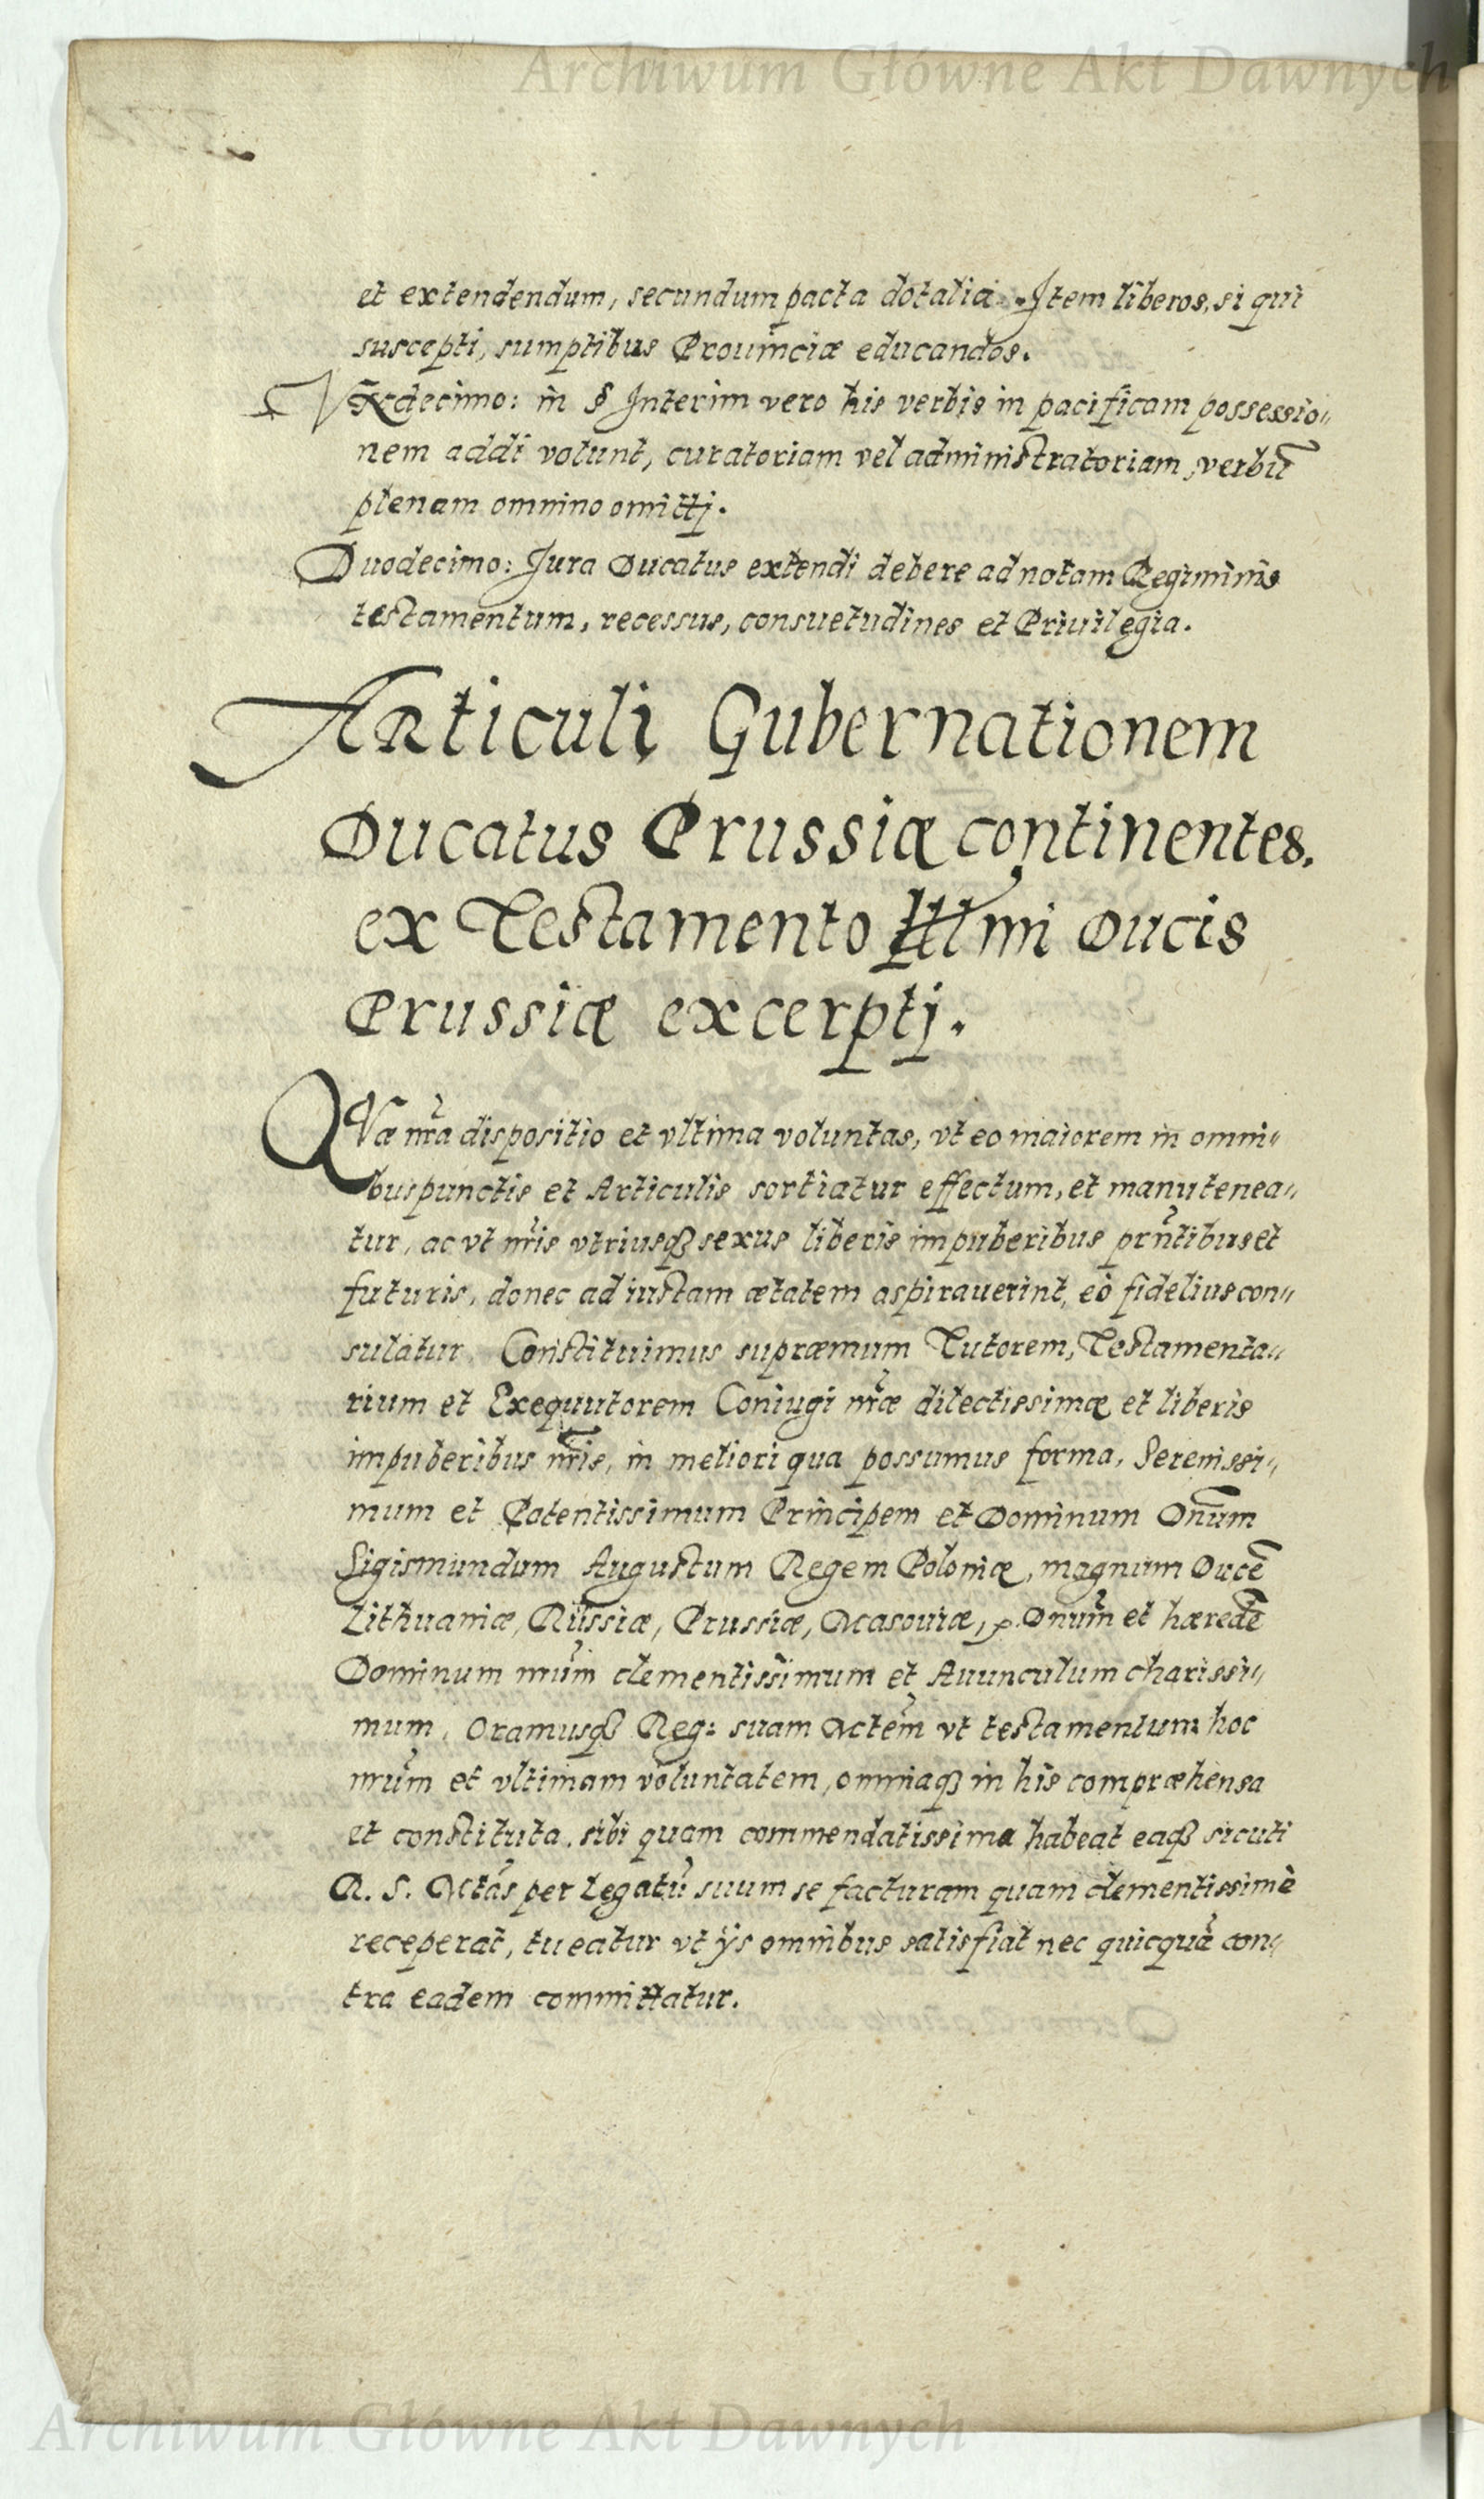 Archiwum Główne Akt Dawnych
et extendendum, secundum pacta dotalia. Item liberos, si qui
suscepti, sumptibus Prouinciæ educandos.
Vndecimo: in § Interim vero his verbis in pacificam possessio„
nem addi volunt, curatoriam vel administratoriam, verbū
plenam omnino omittj.
Duodecimo: Jura Ducatus extendi debere ad notam Regiminis
testamentum, recessus, consuetudines et Priuilegia.
Articuli Gubernationem
Ducatus Prussiæ continentes.
ex Testamento Illmi Ducis
Prussiæ excerptj.
QVæ nr̄a dispositio et vltima voluntas, vt eo maiorem in omni„
bus punctis et Articulis sortiatur effectum, et manutenea„
tur, ac vt nr̄is vtriusqꝫ sexus liberis impuberibus prn̄tibus et
futuris, donec ad iustam ætatem aspirauerint, eò fidelius con„
sulatur. Constituimus supræmum Tutorem, Testamenta„
rium et Exequutorem Coniugi nr̄æ dilectissimæ et liberis
impuberibus nr̄is, in meliori qua possumus forma, Serenissi„
mum et Potentissimum Principem et Dominum Dnum̄
Sigismundum Augustum Regem Poloniæ, magnum Ducē
Lithuaniæ, Russiæ, Prussiæ, Masouiæ, Dnum̄ et hæredē
Dominum nrūm clementissimum et Auunculum charissi„
mum, Oramusqꝫ Reg: suam Mtem̄ vt testamentum hoc
nrūm et vltimam voluntatem, omniaqꝫ in his compræhensa
et constituta, sibi quam commendatissima habeat eaqꝫ sicuti
R. S. Mtās per legatū suum se facturam quam clementissimè
receperat, tueatur vt ijs omnibus satisfiat nec quicquā con„
tra eadem committatur.
Archiwum Główne Akt Dawnych